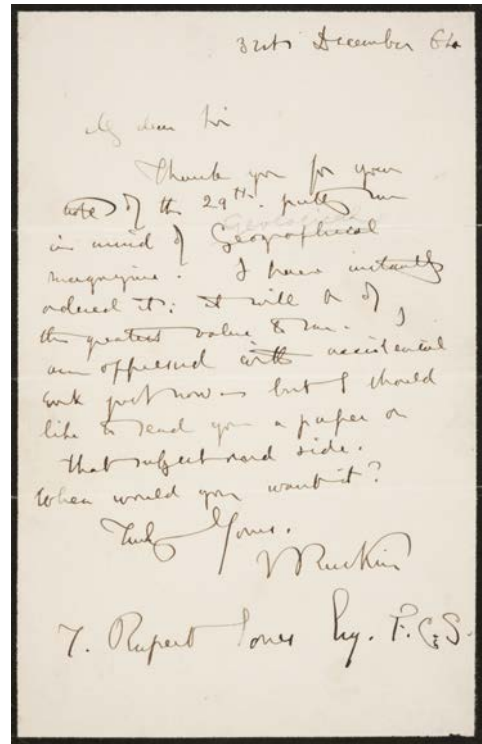 31st December 64
My dear Sir
Thank you for your
note of the 29th. putting me
Geological
in mind of Geographical
magazine. I have instantly
ordered it: It will be of
the greatest value to me. I
am oppressed with accidental
work just now – but I should
like to send you a paper on
that subject side.
When would you want it?
Truly Yours.
J Ruskin
T. Rupert Jones Esq. F.G.S.